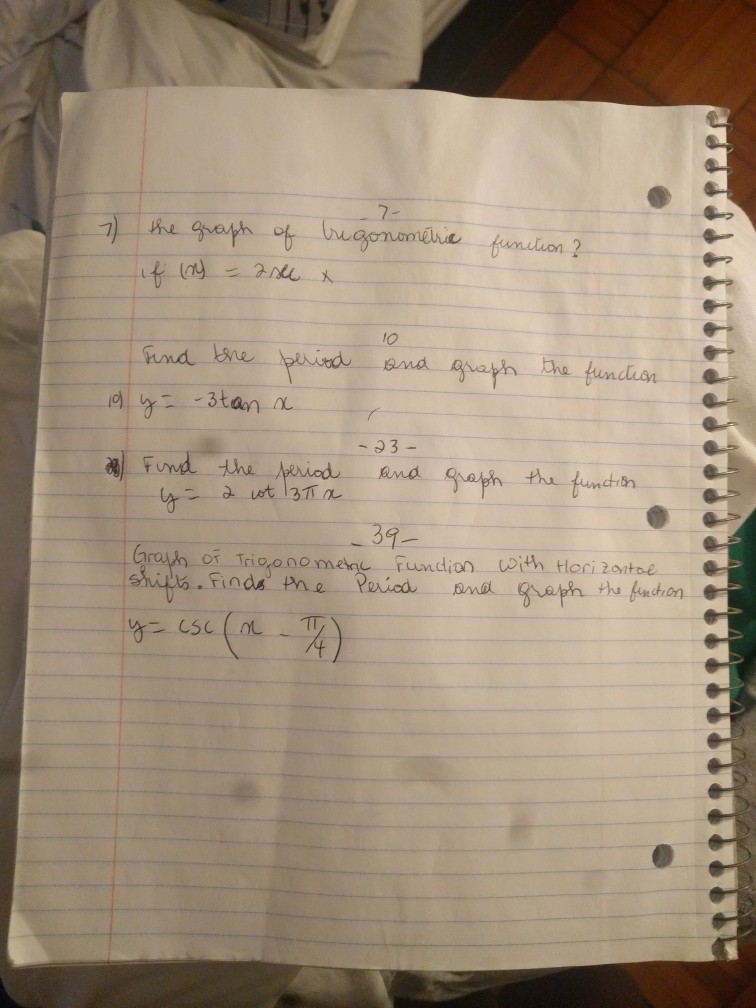 - 7 -
7) the graph of trigonometric function?
if (x) = 2 sec x
10
Find the period and graph the function
10) y = -3tan x
- 23 -
Find the period and graph the function
y = 2 cot 3π x
- 39 -
Graph of Trigonometric Function with Horizontal
shifts. Finds the Period and graph the function
y = csc (x - π/4)